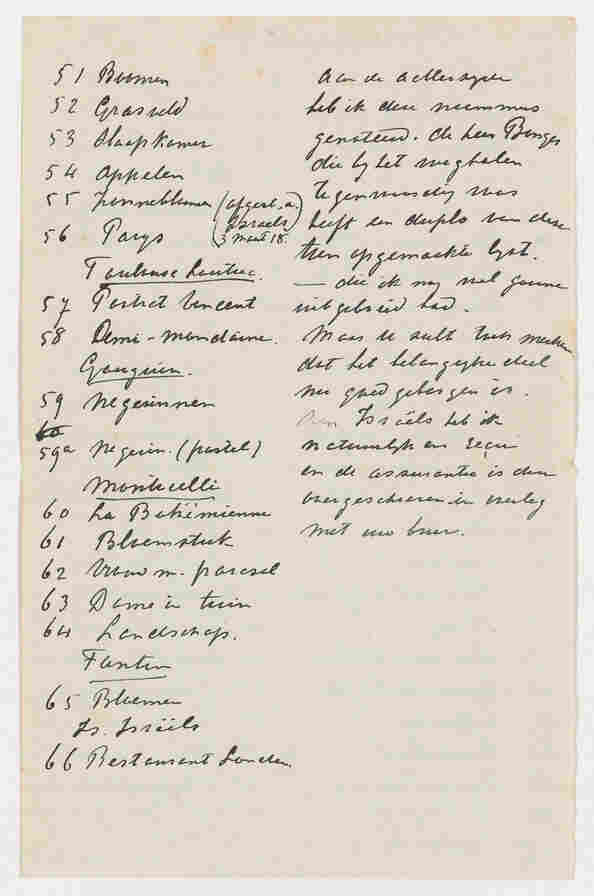 51 Boomen
52 Grasveld
53 Slaapkamer
54 Appelen
55 Zonnebloemen (afgest. a.
Israels
3 Maart 18.)
56 Parijs
Toulouse Lautrec.
57 Portret Vincent
58 Demi-mondaine.
Gauguin.
59 Negerinnen
60
59a Negerin. (pastel)
Monticelli
60 La Bohémienne
61 Bloemstuk
62 Vrouw m. parasol
63 Dame in tuin
64 Landschap.
Fantin
65 Bloemen
Is. Israëls
66 Restaurant Londen.
Aan de achterzyde
heb ik deze nummers
genoteerd. De heer Bonger
die by het weghalen
tegenwoordig was
heeft een duplo van deze
toen opgemaakte lyst.
— die ik nog wel gaarne
uitgebreid had.
Maar U zult toch merken
dat het belangrijke deel
nu goed geborgen is.
Israëls heb ik
natuurlyk een reçu
en de assurantie is dan
overgeschreven in overleg
met uw broer.